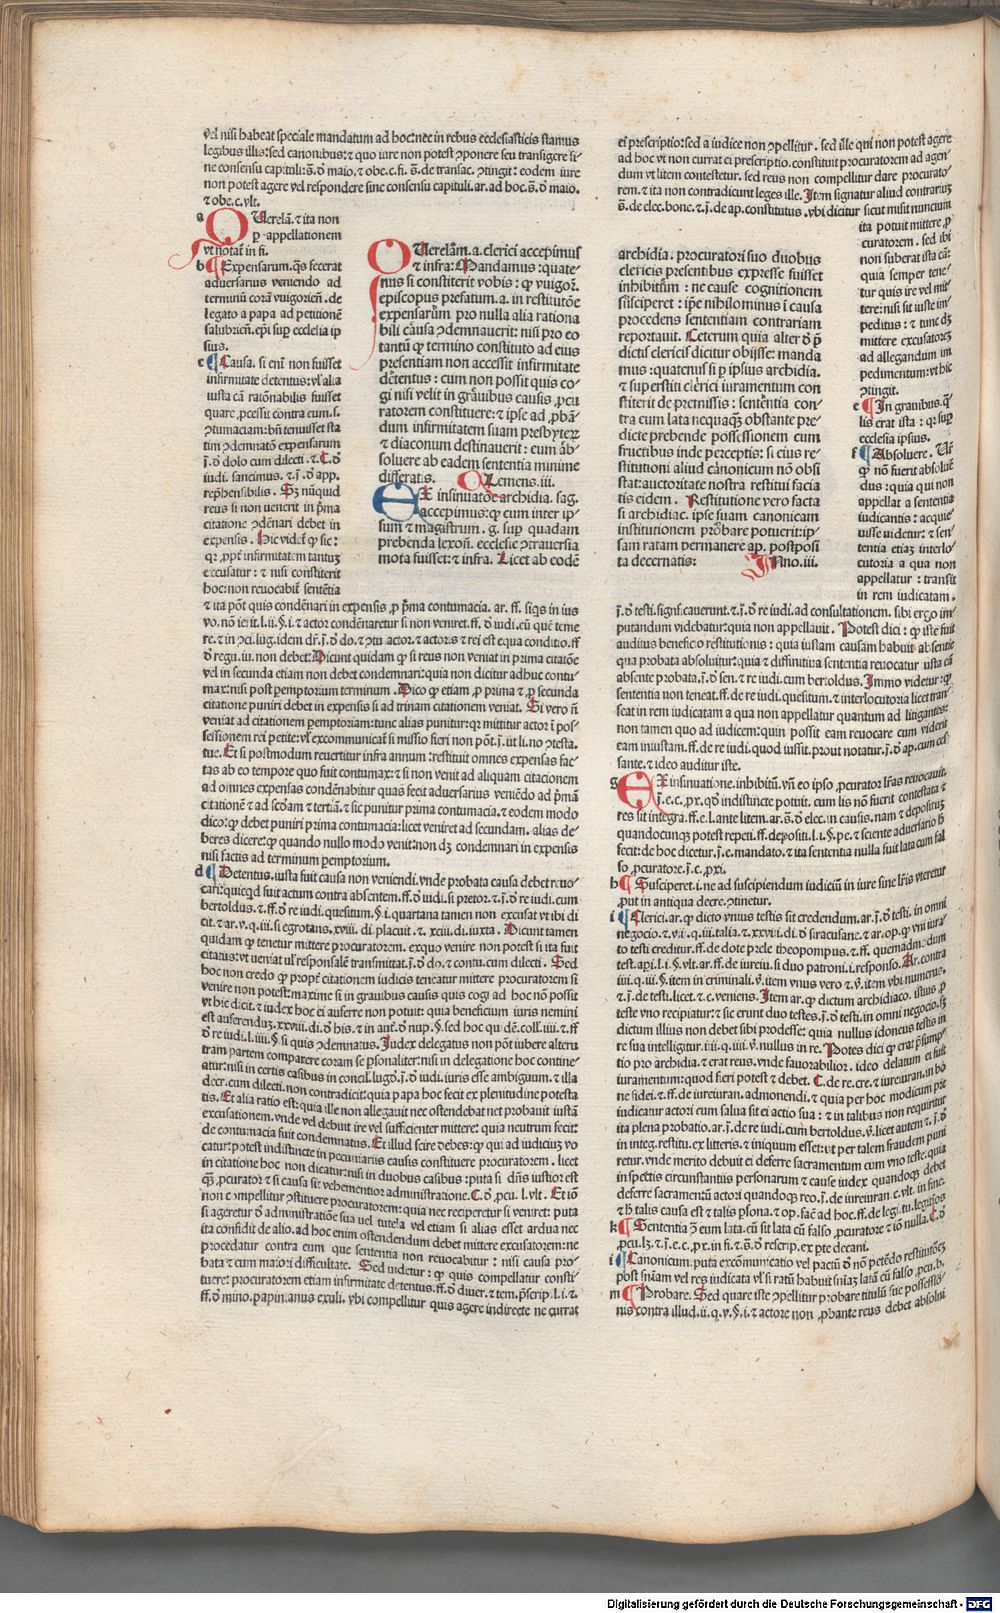 vel nisi habeat speciale mandatum ad hoc: nec in rebus ecclesiasticis stamus
legibus illis: sed canonibus: ⁊ quo iure non potest ꝯponere seu transigere si-
ne consensu capituli: s̄. d̄ maio. ⁊ obe. c. fi. s̄. de transac. ꝯtingit: eodem iure
non potest agere vel respondere sine consensu capituli. ar. ad hoc. s̄. d̄ maio.
⁊ obe. c. vlt.
a QUerelā. ⁊ ita non
ꝑ appellationem
vt notat̄ in fi.
b Expensarum. q̄s fecerat
aduersarius veniendo ad
terminū corā vuigorien̄. de
legato a papa ad petitionē
salubrien̄. epi sup̱ ecclesia ip
sius.
c Causa. si eni non fuisset
infirmitate detentus: vl̓ alia
iusta cā rationabilis fuisset
quare ꝓcessit contra eum. s.
ꝯtumaciam: bn̄ tenuisset sta
tim ꝯdemnatō expensarum
j̄. d̄ dolo cum dilecti. ⁊. C. d̄
iudi. sancimus. ⁊. j̄. d̄ app.
rep̄hensibilis. Sꝫ nūquid
reus si non uenerit in p̄ma
citatione ꝯdēnari debet in
expensis. Hic videt̄ ꝙ sic:
qꝛ ꝓpt̓ infirmitatem tantuꝫ
excusatur: ⁊ nisi constiterit
hoc: non reuocabit̄ sentētia
⁊ ita pōt quis condēnari in expensis ꝓ p̄ma contumacia. ar. ff. siqs in ius
vo. nō ie. it. l. ii. §. i. ⁊ actor condēnaretur si non veniret. ff. d̄ iudi. eū quē teme
re. ⁊ in ꝓxi. lug. idem dr̄. j̄. d̄ do. ⁊ ꝯtu. actor. ⁊ actoris ⁊ rei est equa conditio. ff
d̄ regu. iu. non debet. Dicunt quidam ꝙ si reus non veniat in prima citatōe
vel in secunda etiam non debet condemnari: quia non dicitur adhuc contu-
max: nisi post peremptorium terminum. Dico ꝙ etiam ꝓ prima ⁊ ꝓ secunda
citatione puniri debet in expensis si ad trinam citationem veniat. Si vero n̄
veniat ad citationem ꝑemptoriam: tunc alias punitur: qꝛ mittitur actor ī pos-
sessionem rei petite: vl̓ excommunicat̄ si missio fieri non pōt. j̄. ut li. no ꝯtesta.
tue. Et si postmodum reuertitur infra annum: restituit omnes expensas fac-
tas ab eo tempore quo fuit contumax: ⁊ si non venit ad aliquam citacionem
ad omnes expensas condēnabitur quas fecit aduersarius veniēdo ad p̄mā
citationē ⁊ ad scdam ⁊ tertiā. ⁊ sic punitur prima contumacia. ⁊ eodem modo
dico: ꝙ debet puniri prima contumacia: licet veniret ad secundam. alias de-
beres dicere: ꝙ quando nullo modo venit: non dꝫ condemnari in expensis
nisi factis ad terminum ꝑemptorium.
d Detentus. iusta fuit causa non veniendi. vnde probata causa debet reuo-
cari: quicqd fuit actum contra absentem. ff. d̄ iudi. si pretor. ⁊. j̄. d̄ re iudi. cum
bertoldus. ⁊. ff. d̄ re iudi. quesitum. §. i. quartana tamen non excusat vt ibi di
cit. ⁊ ar. v. q. iii. si egrotans. xviii. di. placuit. ⁊. xciii. di. iuxta. Dicunt tamen
quidam ꝙ tenetur mittere procuratorem. exquo venire non potest si ita fuit
citatus: vt veniat ul̓ responsalē transmittat. j̄. d̄ do. ⁊ contu. cum dilecti. Sed
hoc non credo ꝙ propt̓ citationem iudicis teneatur mittere procuratorem si
venire non potest: maxime si in grauibus causis quis cogi ad hoc nō possit
vt hic dicit. ⁊ iudex hoc ei auferre non potuit: quia beneficium iuris nemini
est auferenduꝫ. xxviii. di. d̄ his. ⁊ in aut̄. d̄ nup. §. sed hoc qu dē. coll. iiii. ⁊. ff
d̄ re iudi. l. iiii. §. si quis ꝯdemnatus. Judex delegatus non pōt iubere alteru
tram partem comparere coram se ꝑsonaliter: nisi in delegatione hoc contine-
atur: nisi in certis casibus in concil̓. lugd̄. j̄. d̄ iudi. iuris esse ambiguum. ⁊ illa
decr. cum dilecti. non contradicit: quia papa hoc fecit ex plenitudine potesta
tis. Et alia ratio est: quia ille non allegauit nec ostendebat nec probauit iustā
excusationem. vnde vel debuit ire vel sufficienter mittere: quia neutrum fecit:
de contumacia fuit condemnatus. Et illud scire debes: ꝙ qui ad iudiciuꝫ vo
catur: potest indistincte in pecuniariis causis constituere procuratorem. licet
in citatione hoc non dicatur: nisi in duobus casibus: puta si dn̄s iustior est
qꝫ ꝓcurator ⁊ si causa sit vehementior administratione. C. d̄ ꝓcu. l. vlt. Et iō
non compellitur ꝯstituere procuratorem: quia nec reciperetur si veniret: puta
si ageretur d̄ administratiōe sua vel tutela vel etiam si alias esset ardua nec
ita confidit de alio. ad hoc enim ostendendum debet mittere excusatorem: ne
procedatur contra eum que sententia non reuocabitur: nisi causa pro-
bata ⁊ cum maiori difficultate. Sed videtur: ꝙ quis compellatur consti-
tuere: procuratorem etiam infirmitate detentus. ff. d̄ diuer. ⁊ tem. p̄scrip. l. i. ⁊.
ff. d̄ mino. papinianus exuli. vbi compellitur quis agere indirecte ne currat
QUerelām. a. clerici accepimus
⁊ infra: Mandamus: quate-
nus si constiterit vobis: ꝙ vuigorn̄.
episcopus prefatum. a. in restitutōe
expensarum pro nulla alia rationa
bili causa ꝯdemnauerit: nisi pro eo
tantū ꝙ termino constituto ad eius
presentiam non accessit infirmitate
detentus: cum non possit quis co-
gi nisi velit in grauibus causis ꝓcu
ratorem constituere: ⁊ ipse ad ꝓbā-
dum infirmitatem suam presbyteꝝ
⁊ diaconum destinauerit: eum ab-
soluere ab eadem sententia minime
differatis. Clemens. iii.
EX insinuatōe archidia. sag.
accepimus: ꝙ cum inter ip-
sum ⁊ magistrum. g. sup̱ quadam
prebenda lexon̄. ecclesie ꝯtrauersia
mota fuisset: ⁊ infra. Licet ab eodē
ei prescriptio: sed a iudice non ꝯpellitur. sed ille qui non potest agere
ad hoc vt non currat ei prescriptio. constituit procuratorem ad agen-
dum vt litem contestetur. sed reus non compellitur dare procurato-
rem. ⁊ ita non contradicunt leges ille. Item signatur aliud contrariuꝫ
s̄. de elec. bone. ⁊. j̄. de ap. constitutus. vbi dicitur sicut misit nuncium
ita potuit mittere ꝓ
curatorem. sed ibi
non fuberat ista cā:
quia semper tene-
tur quis ire vel mit-
tere: nisi sit iuste im-
peditus: ⁊ tunc dꝫ
mittere excusatoreꝫ
ad allegandum im
pedimentum: vt hic
ꝯtingit.
e In grauibus. q̄-
lis erat ista: qꝛ sup̱
ecclesia ipsius.
f Absoluere. Un̄
ꝙ nō fuerit absoluē
dus: quia qui non
appellat a sententia
iudicantis: acquie-
uisse videtur: ⁊ sen-
tentia etiam interlo-
cutoria a qua non
appellatur: transit
in rem iudicatam.
archidia. procuratori suo duobus
clericis presentibus expresse fuisset
inhibitum: ne cause cognitionem
susciperet: ip̄e nihilominus ī causa
procedens sententiam contrariam
reportauit. Ceterum quia alter d̄ p̄
dictis clericis dicitur obijsse: manda
mus: quatenus si ꝑ ipsius archidia.
⁊ superstiti clerici iuramentum con
stiterit de premissis: sententia con-
tra eum lata nequaqꝫ obstante pre-
dicte prebende possessionem cum
fructibus inde perceptis: si eius re-
stitutioni aliud canonicum nō obsi
stat: auctoritate nostra restitui facia
tis eidem. Restitutione vero facta
si archidiac. ipse suam canonicam
institutionem probare potuerit: ip-
sam ratam permanere ap. postposi
ta decernatis: Inno. iii.
j̄. d̄ testi. signif. cauerunt. ⁊. j̄. d̄ re iudi. ad consultationem. sibi ergo im-
putandum videbatur: quia non appellauit. Potest dici: ꝙ iste fuit
auditus beneficio restitutionis: quia iustam causam habuit absentie
qua probata absoluitur: quia ⁊ diffinitiua sententia reuocatur iusta cā
absente probata. j̄. d̄ sen. ⁊ re iudi. cum bertoldus. Immo videtur: ꝙ
sententia non teneat. ff. de re iudi. quesitum. ⁊ interlocutoria licet tran-
seat in rem iudicatam a qua non appellatur quantum ad litigantes:
non tamen quo ad iudicem: quin possit eam reuocare cum viderit
eam iniustam. ff. de re iudi. quod iussit. prout notatur. j̄. d̄ ap. cum ces
sante. ⁊ ideo auditur iste.
g EX insinuatione. inhibitū. vn̄ eo ipso ꝓcurator lr̄as reuocauit.
j̄. e. c. ꝓx. qd̓ indistincte potuit. cum lis nō fuerit contestata ⁊
res sit integra. ff. e. l. ante litem. ar. s̄. d̄ elec. in causis. nam ⁊ depositus
quandocunqꝫ potest repeti. ff. depositi. l. i. §. pe. ⁊ sciente aduersario h̄
fecit: de hoc dicetur. j̄. e. mandato. ⁊ ita sententia nulla fuit lata cum fal
so ꝓcuratore. j̄. c. ꝓxi.
h Susciperet. i. ne ad suscipiendum iudiciū in iure sine lr̄is vteretur
ꝓut in antiqua decre. ꝯtinetur.
i Clerici. ar. ꝙ dicto vnius testis sit credendum. ar. j̄. d̄ testi. in omni
negocio. ⁊. vi. q. iii. talia. ⁊. xxvi. di. d̄ siracusane. ⁊ ar. op. ꝙ vni iura-
to testi creditur. ff. de dote prele. theopompus. ⁊. ff. quemadm: dum
test. api. l. i. §. vlt. ar. ff. de iureiu. si duo patroni. i. responso. Ar. contra
iiii. q. iii. §. item in criminali. v̄. item vnus vero ⁊. v̄. item vbi numerus.
⁊. j̄. de testi. licet. ⁊. c. veniens. Item ar. ꝙ dictum archidiaco. istius ꝓ
teste vno recipiatur: ⁊ sic erunt duo testes. j̄. d̄ testi. in omni negocio. sꝫ
dictum illius non debet sibi prodesse: quia nullus idoneus testis in
re sua intelligitur. iiii. q. iiii. v̄. nullus in re. Potes dici ꝙ erat p̄sump-
tio pro archidia. ⁊ erat reus. vnde fauorabilior. ideo delatum ei fuit
iuramentum: quod fieri potest ⁊ debet. C. de re. cre. ⁊ iureiuran. in bō
ne fidei. ⁊. ff. de iureiuran. admonendi. ⁊ quia per hoc modicum pre
iudicatur actori cum salua sit ei actio sua: ⁊ in talibus non requiritur
ita plena probatio. ar. j̄. de re iudi. cum bertoldus. v̄. licet autem ⁊. j̄. d̄
in integ. restitu. ex litteris. ⁊ iniquum esset: vt per talem fraudem puni
retur. vnde merito debuit ei deferre sacramentum cum vno teste. quia
inspectis circumstantiis personarum ⁊ cause iudex quandoqꝫ debet
deferre sacramentū actori quandoqꝫ reo. j̄. de iureiuran. c. vlt. in fine.
⁊ h̄ talis causa est ⁊ talis plona. ⁊ op. sac̄ ad hoc. ff. de legi. tu. legitios
k Sententia ꝯ̄ eum lata. cū sit lata cū falso ꝓcuratore ⁊ iō nulla. C. d̄
ꝓcu. lꝫ. ⁊. j̄. e. c. ꝓx. in fi. ⁊. s̄. d̄ rescrip. ex pte decani.
l Canonicum. puta excōmunicatio vel pactū d̄ nō petēdo restitutōeꝫ
post sn̄iam vel res iudicata vl̓ si ratū habuit sn̄iaꝫ latā cū falso ꝓcu. b.
m Probare. Sed quare iste ꝯpellitur probare titulū sue possessio-
nis contra illud. ii. q. v. §. i. ⁊ actore non ꝓbante reus debet absolui
Digitalisierung gefördert durch die Deutsche Forschungsgemeinschaft - DFG